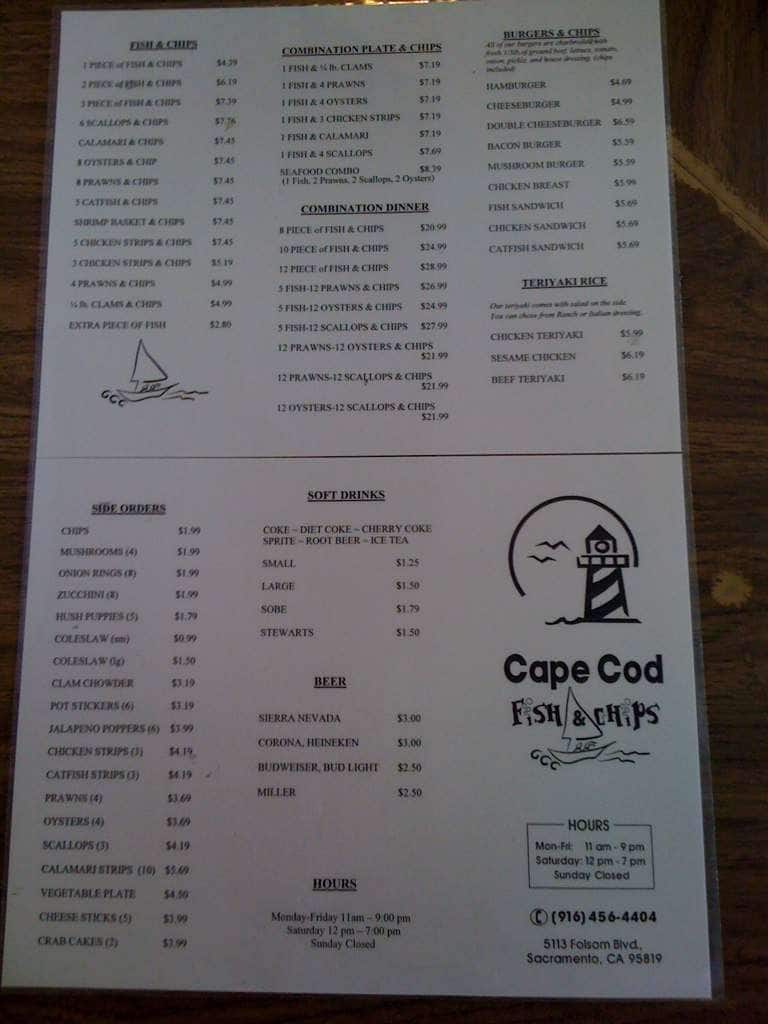 FISH & CHIPS
1 PIECE of FISH & CHIPS $4.39
2 PIECE of FISH & CHIPS $6.19
3 PIECE of FISH & CHIPS $7.39
6 SCALLOPS & CHIPS
CALAMARI & CHIPS $7.45
8 OYSTERS & CHIP $7.45
8 PRAWNS & CHIPS $7.45
5 CATFISH & CHIPS $7.45
SHRIMP BASKET & CHIPS $7.45
5 CHICKEN STRIPS & CHIPS $7.45
3 CHICKEN STRIPS & CHIPS $5.19
4 PRAWNS & CHIPS $4.99
¼ lb. CLAMS & CHIPS $4.99
EXTRA PIECE OF FISH $2.80
COMBINATION PLATE & CHIPS
1 FISH & ¼ lb. CLAMS $7.19
1 FISH & 4 PRAWNS $7.19
1 FISH & 4 OYSTERS $7.19
1 FISH & 3 CHICKEN STRIPS $7.19
1 FISH & CALAMARI $7.19
1 FISH & 4 SCALLOPS $7.69
SEAFOOD COMBO $8.39
(1 Fish, 2 Prawns, 2 Scallops, 2 Oysters)
COMBINATION DINNER
8 PIECE of FISH & CHIPS $20.99
10 PIECE of FISH & CHIPS $24.99
12 PIECE of FISH & CHIPS $28.99
5 FISH-12 PRAWNS & CHIPS $26.99
5 FISH-12 OYSTERS & CHIPS $24.99
5 FISH-12 SCALLOPS & CHIPS $27.99
12 PRAWNS-12 OYSTERS & CHIPS
$21.99
12 PRAWNS-12 SCALLOPS & CHIPS
$21.99
12 OYSTERS-12 SCALLOPS & CHIPS
$21.99
BURGERS & CHIPS
All of our burgers are charbroiled with
fresh 1/3lb of ground beef, lettuce, tomato,
onion, pickle, and house dressing. (chips
included)
HAMBURGER $4.69
CHEESEBURGER $4.99
DOUBLE CHEESEBURGER $6.59
BACON BURGER $5.59
MUSHROOM BURGER $5.59
CHICKEN BREAST $5.99
FISH SANDWICH $5.69
CHICKEN SANDWICH $5.69
CATFISH SANDWICH $5.69
TERIYAKI RICE
Our teriyaki comes with salad on the side.
You can chose from Ranch or Italian dressing.
CHICKEN TERIYAKI $5.99
SESAME CHICKEN $6.19
BEEF TERIYAKI $6.19
SIDE ORDERS
CHIPS $1.99
MUSHROOMS (4) $1.99
ONION RINGS (8) $1.99
ZUCCHINI (8) $1.99
HUSH PUPPIES (5) $1.79
COLESLAW (sm) $0.99
COLESLAW (lg) $1.50
CLAM CHOWDER $3.19
POT STICKERS (6) $3.19
JALAPENO POPPERS (6) $3.99
CHICKEN STRIPS (3) $4.19
CATFISH STRIPS (3) $4.19
PRAWNS (4) $3.69
OYSTERS (4) $3.69
SCALLOPS (3) $4.19
CALAMARI STRIPS (10) $5.69
VEGETABLE PLATE $4.50
CHEESE STICKS (5) $3.99
CRAB CAKES (2) $3.99
SOFT DRINKS
COKE ~ DIET COKE ~ CHERRY COKE
SPRITE ~ ROOT BEER ~ ICE TEA
SMALL $1.25
LARGE $1.50
SOBE $1.79
STEWARTS $1.50
BEER
SIERRA NEVADA $3.00
CORONA, HEINEKEN $3.00
BUDWEISER, BUD LIGHT $2.50
MILLER $2.50
HOURS
Monday-Friday 11am – 9:00 pm
Saturday 12 pm – 7:00 pm
Sunday Closed
Cape Cod
FISH & CHIPS
HOURS
Mon-Fri: 11 am - 9 pm
Saturday: 12 pm - 7 pm
Sunday Closed
(916) 456-4404
5113 Folsom Blvd.,
Sacramento, CA 95819